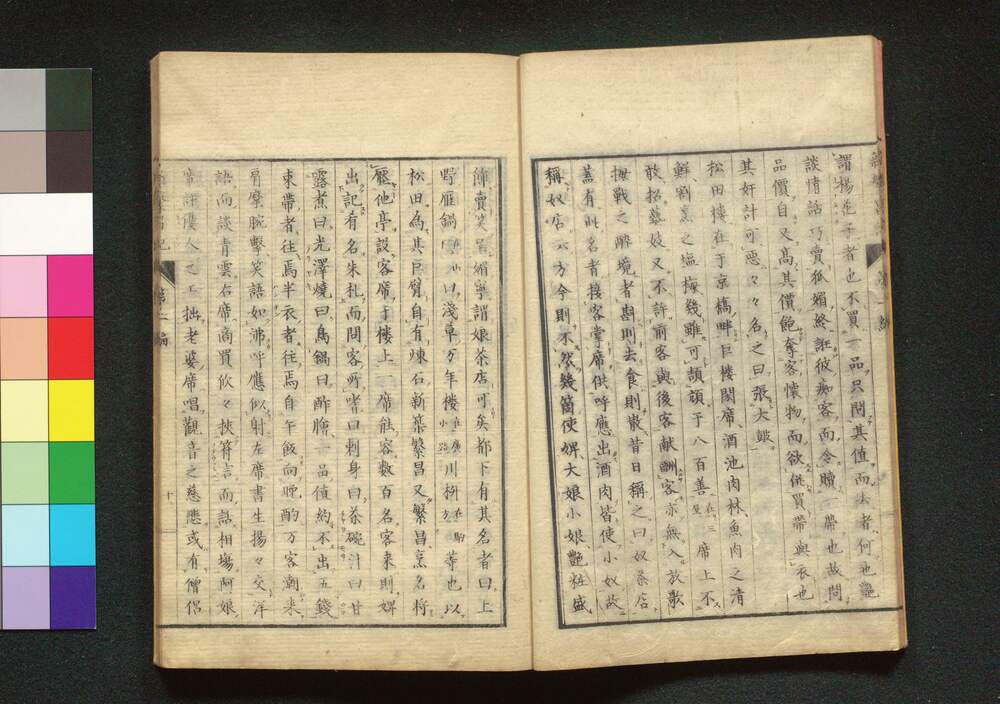 謂揚花子者也不買一品只問其值而去者何也艷
談情話巧賣狐媚終誑彼痴客而令贖一帶也故問
品價自又高其價飽奪客懷物而欲併買帶與衣也
其奸計可惡々々名之曰張大皷
松田樓在于京橋畔巨樓闊席酒池肉林魚肉之清
鮮割烹之塩梅幾雖可頡頏于八百善在三谷席上不
敢招藝妓又不許前客與後客献酬客亦無入放歌
拇戰之醉境者斟則去食則散昔日稱之曰奴茶店
蓋有此名者接客掌席供呼應出酒肉皆使小奴故
稱奴店云方今則不然幾箇使婢大娘小娘艷粧盛
飾賣笑呈媚寧謂娘茶店可矣都下有其名者曰上
野雁鍋曰淺草万年樓在廣小路川枡在駒方等也以
松田為其巨臂自有煉石新築繁昌又繁昌烹名将
壓他亭設客席于樓上一席能容數百名客来則婢
出記有名朱札而問客所嗜曰刺身曰茶碗汁曰甘
露煮曰光澤燒曰鳥鍋曰酢膾一品值約不出五錢
束帶者往焉半衣者往焉自午飯向曛酌万客潮来
肩摩腕擊笑語如沸呼應似射左席書生揚々交洋
語而談青雲右席商買欣々挾符言而話相場阿娘
評優人之工拙老婆席唱觀音之慈悲或有僧侶
十